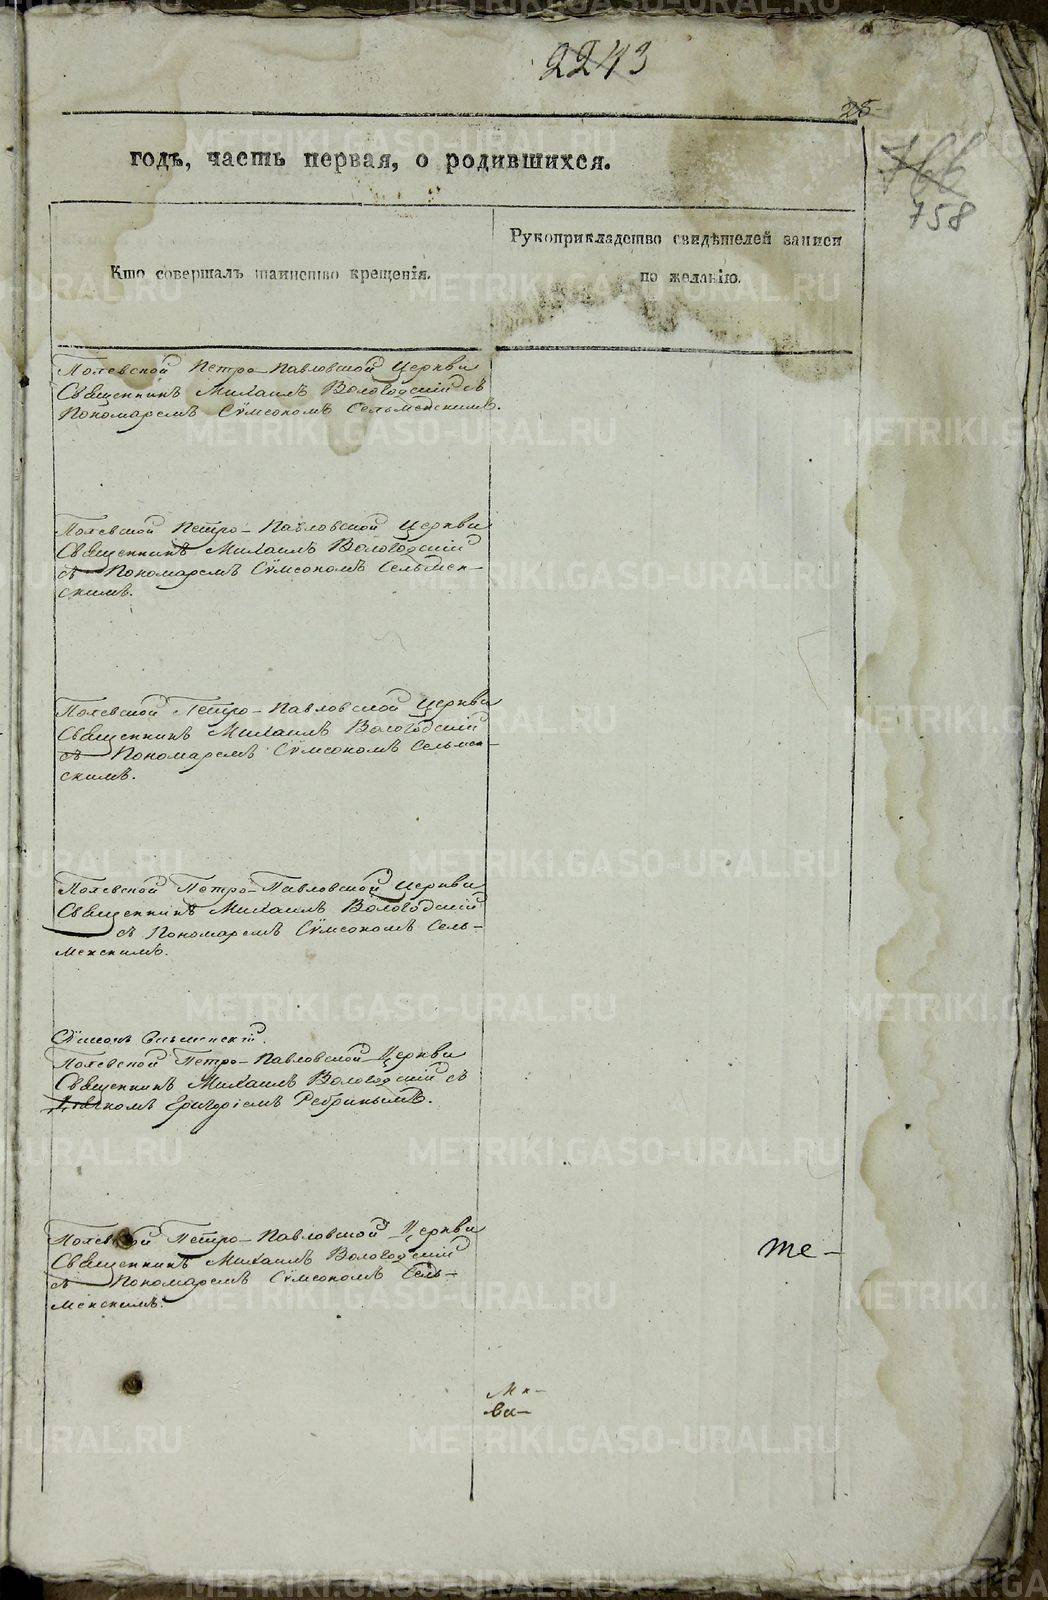 2243
25
766
758
годъ, часть первая, о родившихся.
Кто совершалъ таинство крещенія.
Рукоприкладство свидѣтелей записи
по желанію.
Полевской Петро-Павловской Церкви
Священникъ Михаилъ Вологодскій съ
Пономаремъ Сѵмеономъ Сельменскимъ.
Полевской Петро-Павловской Церкви
Священникъ Михаилъ Вологодскій
съ Пономаремъ Сѵмеономъ Сельмен-
скимъ.
Полевской Петро-Павловской Церкви
Священникъ Михаилъ Вологодскій
съ Пономаремъ Сѵмеономъ Сельмен-
скимъ.
Полевской Петро-Павловской Церкви
Священникъ Михаилъ Вологодскій
съ Пономаремъ Сѵмеономъ Сель-
менскимъ.
Полевской Петро-Павловской Церкви
Священникъ Михаилъ Вологодскій съ
Григоріемъ
Полевской Петро-Павловской Церкви
Священникъ Михаилъ Вологодскій
съ Пономаремъ Сѵмеономъ Сель-
менскимъ.
те-
METRIKI.GASO-URAL.RU